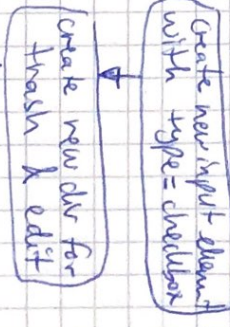 Create new input element
with type=checkbox
create new div for
trash & edit